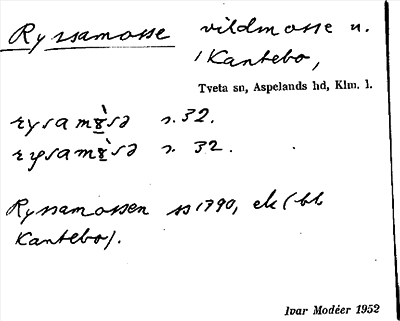 Ryssamosse vildmosse n.
i Kantebo,
Tveta sn, Aspelands hd, Klm. l.
rysamɷ̀sə s. 32.
rysamɷ̀sə s. 32.
Ryssamossen ss 1790, ek (bl
Kantebo).
Ivar Modéer 1952